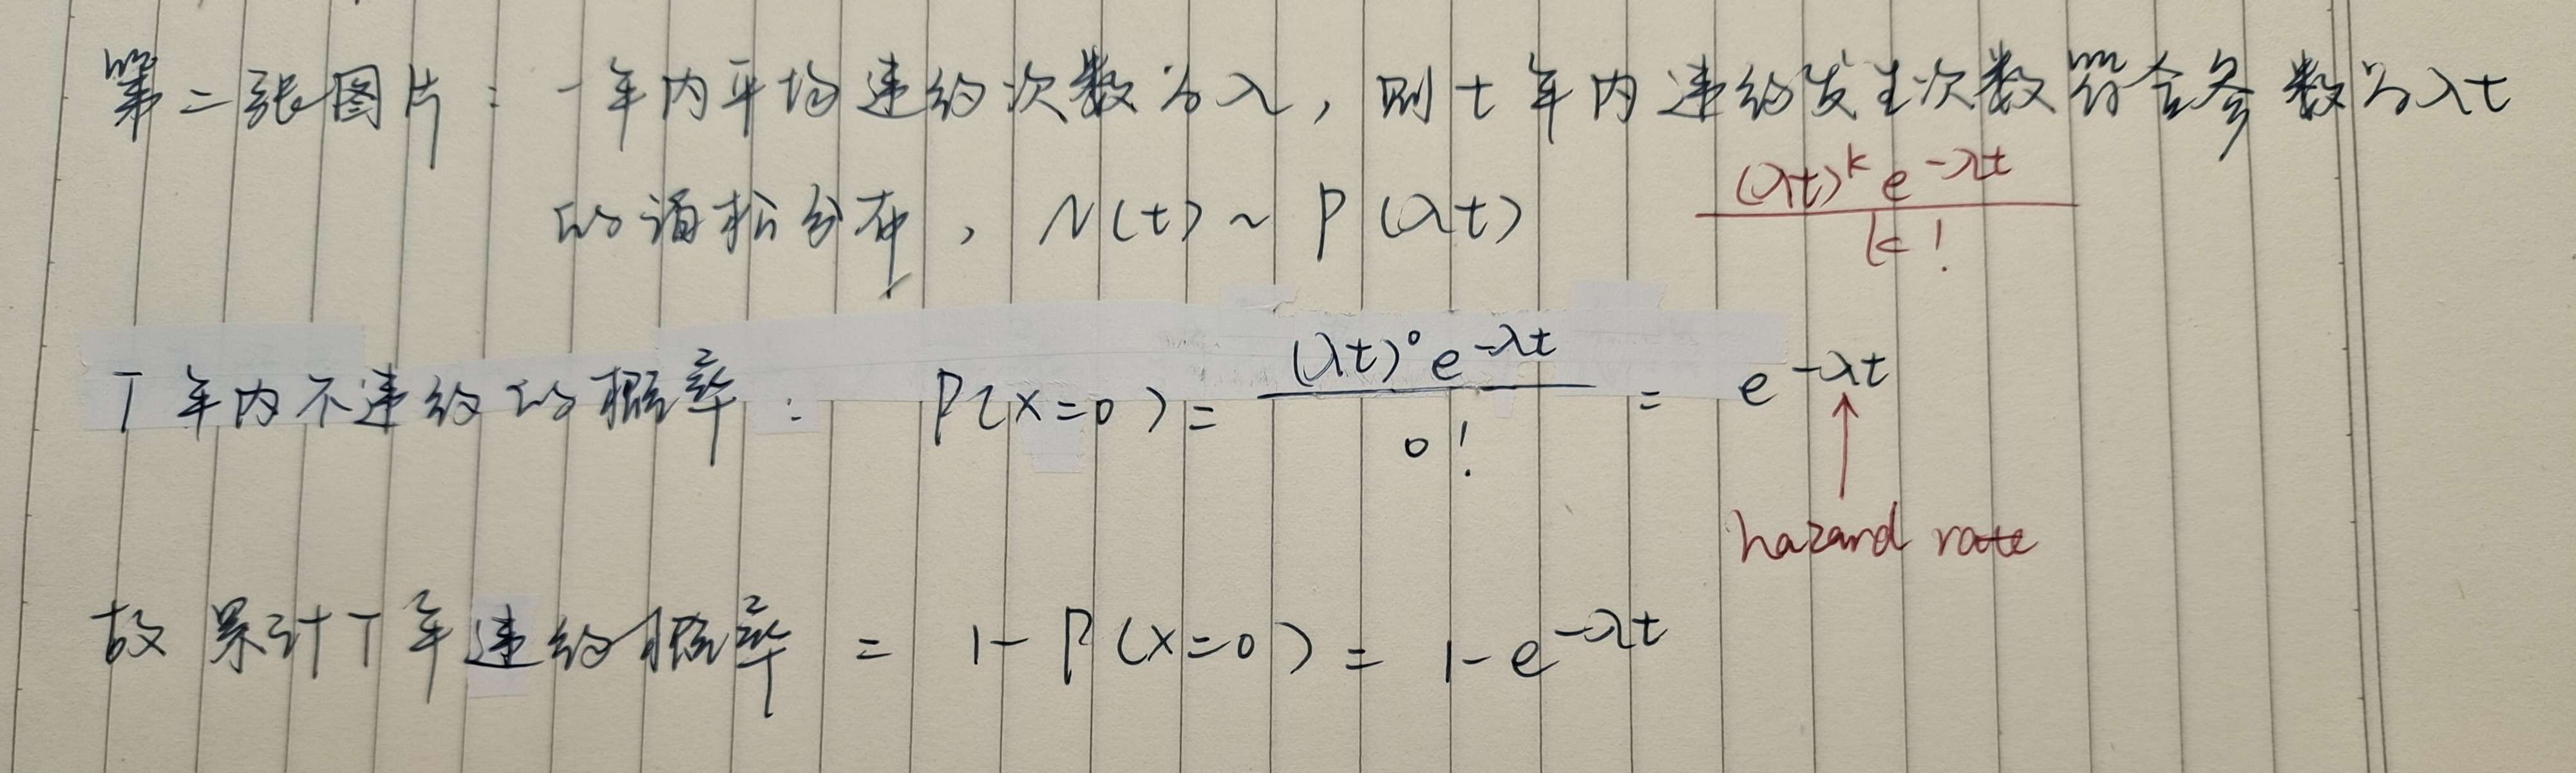 第二张图片：一年内平均违约次数为λ，则t年内违约发生次数符合参数为λt
的泊松分布，N(t) ~ P(λt)
(λt)^k e^{-λt} / k!
T年内不违约的概率：P(x=0) = (λt)^0 e^{-λt} / 0! = e^{-λt}
hazard rate
故累计T年违约概率 = 1 - P(x=0) = 1 - e^{-λt}